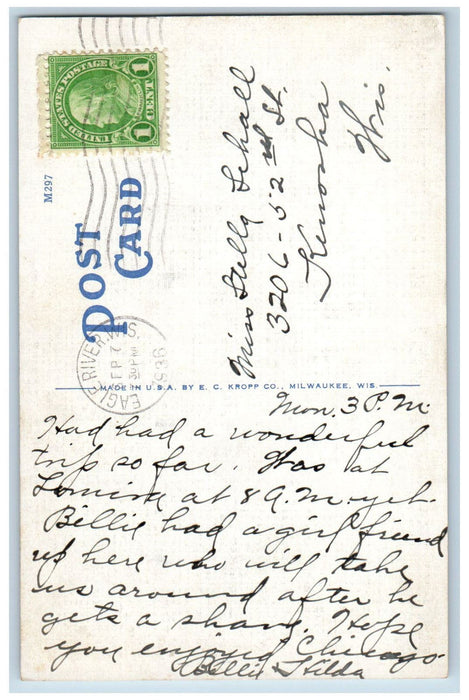 UNITED STATES POSTAGE
1 CENT 1
M297
POST
CARD
EAGLE RIVER, WIS.
SEP 7
PM
1936
Miss Sally Schall
3206-52nd St.
Kenosha
Wis.
MADE IN U.S.A. BY E. C. KROPP CO., MILWAUKEE, WIS.
Mon. 3 P.M.
Had had a wonderful
trip so far. Was at
at 8 A.M. yet.
Billie had a girl friend
up here who will take
us around after he
gets a shave. Hope
you enjoyed Chicago.
Billie & Hilda